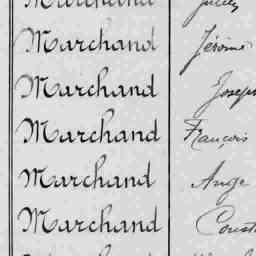 Marchand Jules
Marchand Jérôme
Marchand Joseph
Marchand François
Marchand Ange
Marchand Const